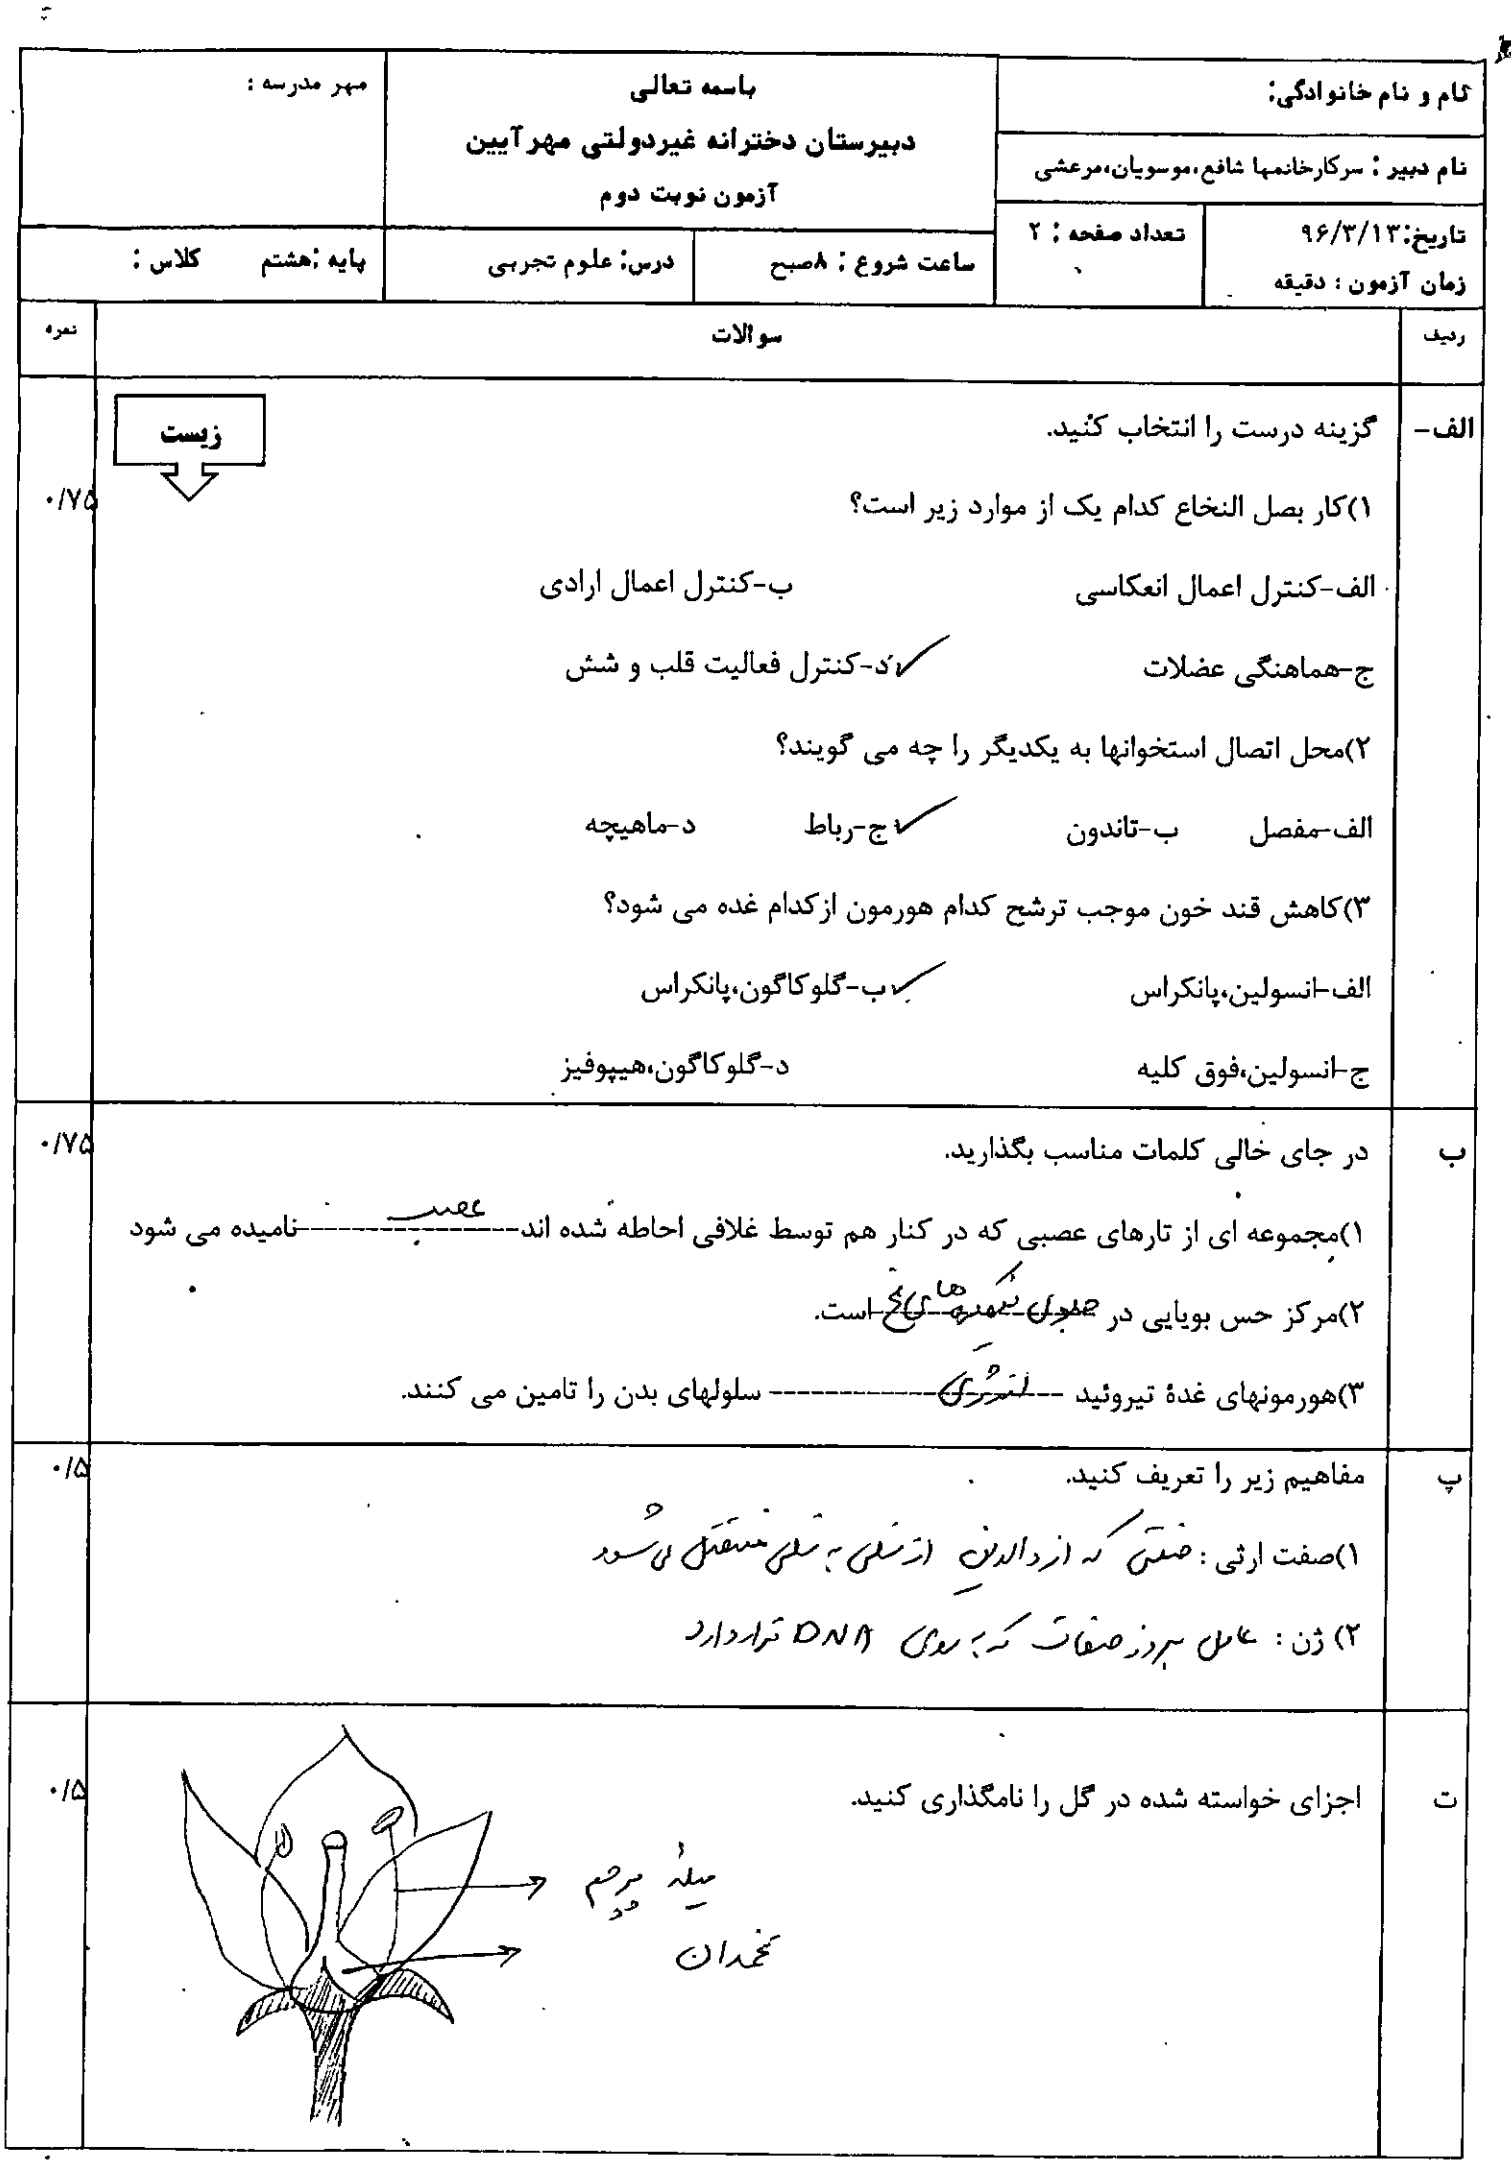 نام و نام خانوادگی:
باسمه تعالی
مهر مدرسه :
دبیرستان دخترانه غیردولتی مهرآیین
نام دبیر : سرکارخانمها شافع،موسویان،مرعشی
آزمون نوبت دوم
تاریخ:۹۶/۳/۱۳
تعداد صفحه : ۲
ساعت شروع : ۸صبح
درس: علوم تجربی
پایه :هشتم کلاس :
زمان آزمون : دقیقه
ردیف
سوالات
نمره
الف-
گزینه درست را انتخاب کنید.
زیست
۱)کار بصل النخاع کدام یک از موارد زیر است؟
۰/۷۵
الف-کنترل اعمال انعکاسی ب-کنترل اعمال ارادی
ج-هماهنگی عضلات د-کنترل فعالیت قلب و شش
۲)محل اتصال استخوانها به یکدیگر را چه می گویند؟
الف-مفصل ب-تاندون ج-رباط د-ماهیچه
۳)کاهش قند خون موجب ترشح کدام هورمون ازکدام غده می شود؟
الف-انسولین،پانکراس ب-گلوکاگون،پانکراس
ج-انسولین،فوق کلیه د-گلوکاگون،هیپوفیز
ب
در جای خالی کلمات مناسب بگذارید.
۰/۷۵
۱)مجموعه ای از تارهای عصبی که در کنار هم توسط غلافی احاطه شده اند عصب نامیده می شود
۲)مرکز حس بویایی در جلوی نیمکره های مخ است.
۳)هورمونهای غدۀ تیروئید انرژی سلولهای بدن را تامین می کنند.
پ
مفاهیم زیر را تعریف کنید.
۰/۵
۱)صفت ارثی : صفتی که از والدین از نسلی به نسلی منتقل می شود
۲) ژن : عامل بروز صفات که به روی DNA قرار دارد
ت
اجزای خواسته شده در گل را نامگذاری کنید.
۰/۵
میلۀ پرچم
تخمدان